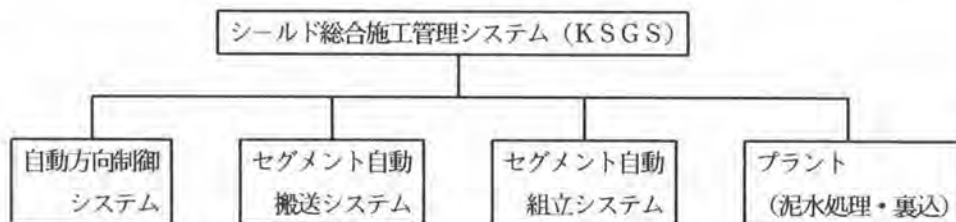 シールド総合施工管理システム（ＫＳＧＳ）
自動方向制御
システム
セグメント自動
搬送システム
セグメント自動
組立システム
プラント
（泥水処理・裏込）